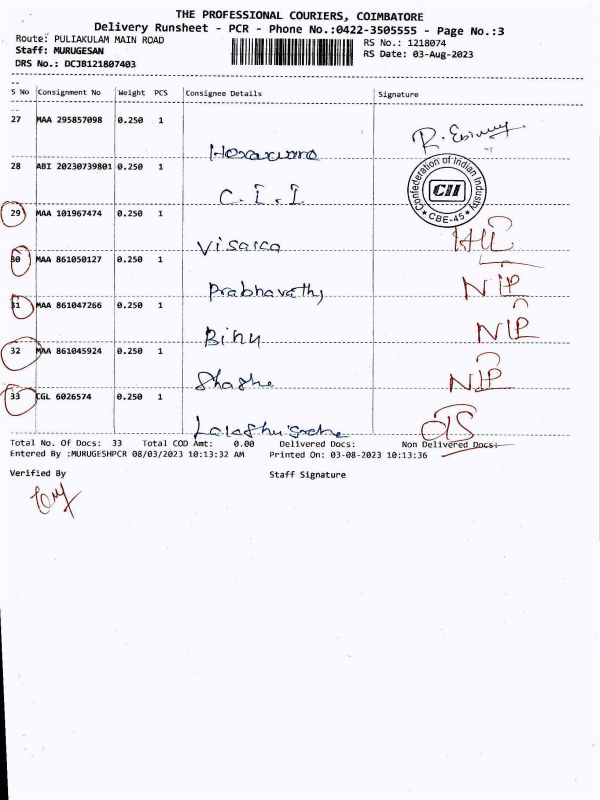 THE PROFESSIONAL COURIERS, COIMBATORE
Delivery Runsheet - PCR - Phone No.:0422-3505555 - Page No.:3
Route: PULIAKULAM MAIN ROAD
RS No.: 1218074
Staff: MURUGESAN
RS Date: 03-Aug-2023
DRS No.: DCJB121807403
S No Consignment No Weight PCS Consignee Details Signature
27 MAA 295857098 0.250 1
28 ABI 20230739801 0.250 1
C.I.I
Confederation of Indian Industry
CII
★ CBE-45 ★
29 MAA 101967474 0.250 1
Visaica
30 MAA 861050127 0.250 1
Prabhavathy NIP
31 MAA 861047266 0.250 1
Binu NIP
32 MAA 861045924 0.250 1
NIP
33 CGL 6026574 0.250 1
OTS
Total No. Of Docs: 33 Total COD Amt: 0.00 Delivered Docs: Non Delivered Docs:
Entered By :MURUGESHPCR 08/03/2023 10:13:32 AM Printed On: 03-08-2023 10:13:36
Verified By Staff Signature